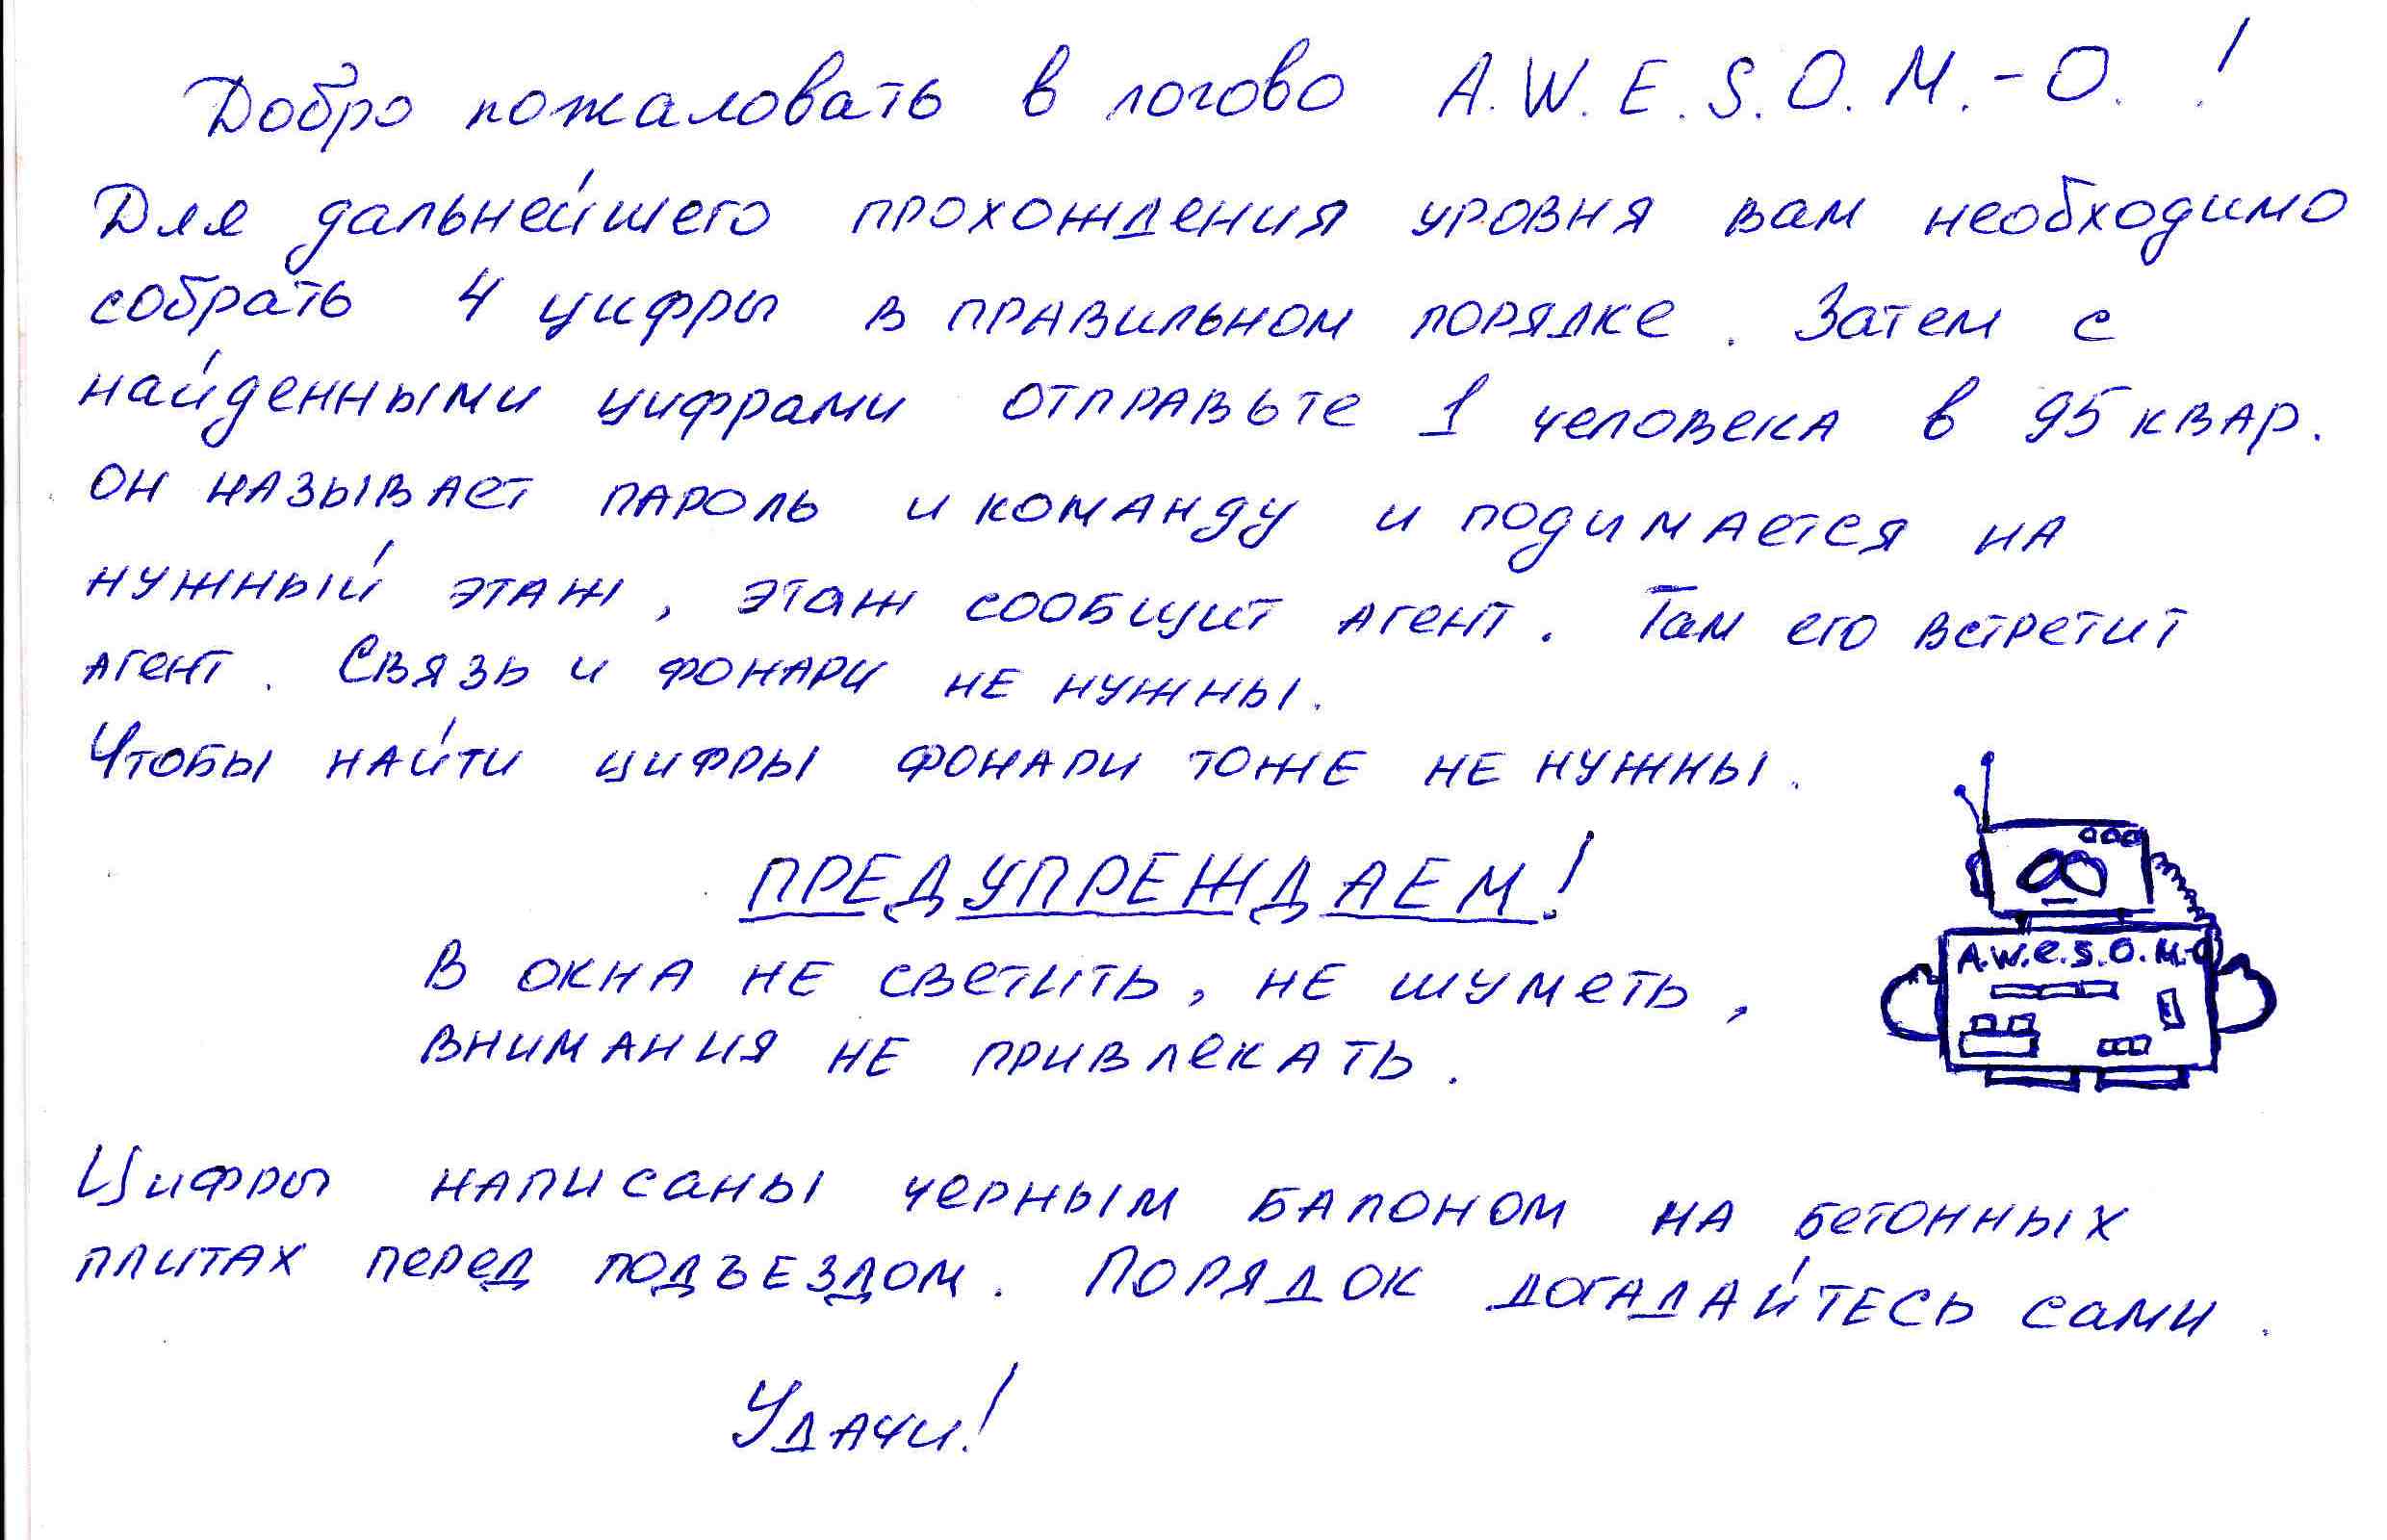 Добро пожаловать в логово A.W.E.S.O.M.-O. !
Для дальнейшего прохождения уровня вам необходимо
собрать 4 цифры в правильном порядке. Затем с
найденными цифрами отправьте 1 человека в 95 квар.
он называет пароль и команду и подимается на
нужный этаж, этаж сообщит агент. Там его встретит
агент. Связь и фонари не нужны.
Чтобы найти цифры фонари тоже не нужны.
ПРЕДУПРЕЖДАЕМ!
В окна не светить, не шуметь,
внимания не привлекать.
A.W.e.S.O.M.-O
Цифры написаны черным балоном на бетонных
плитах перед подъездом. Порядок догадайтесь сами.
Удачи!